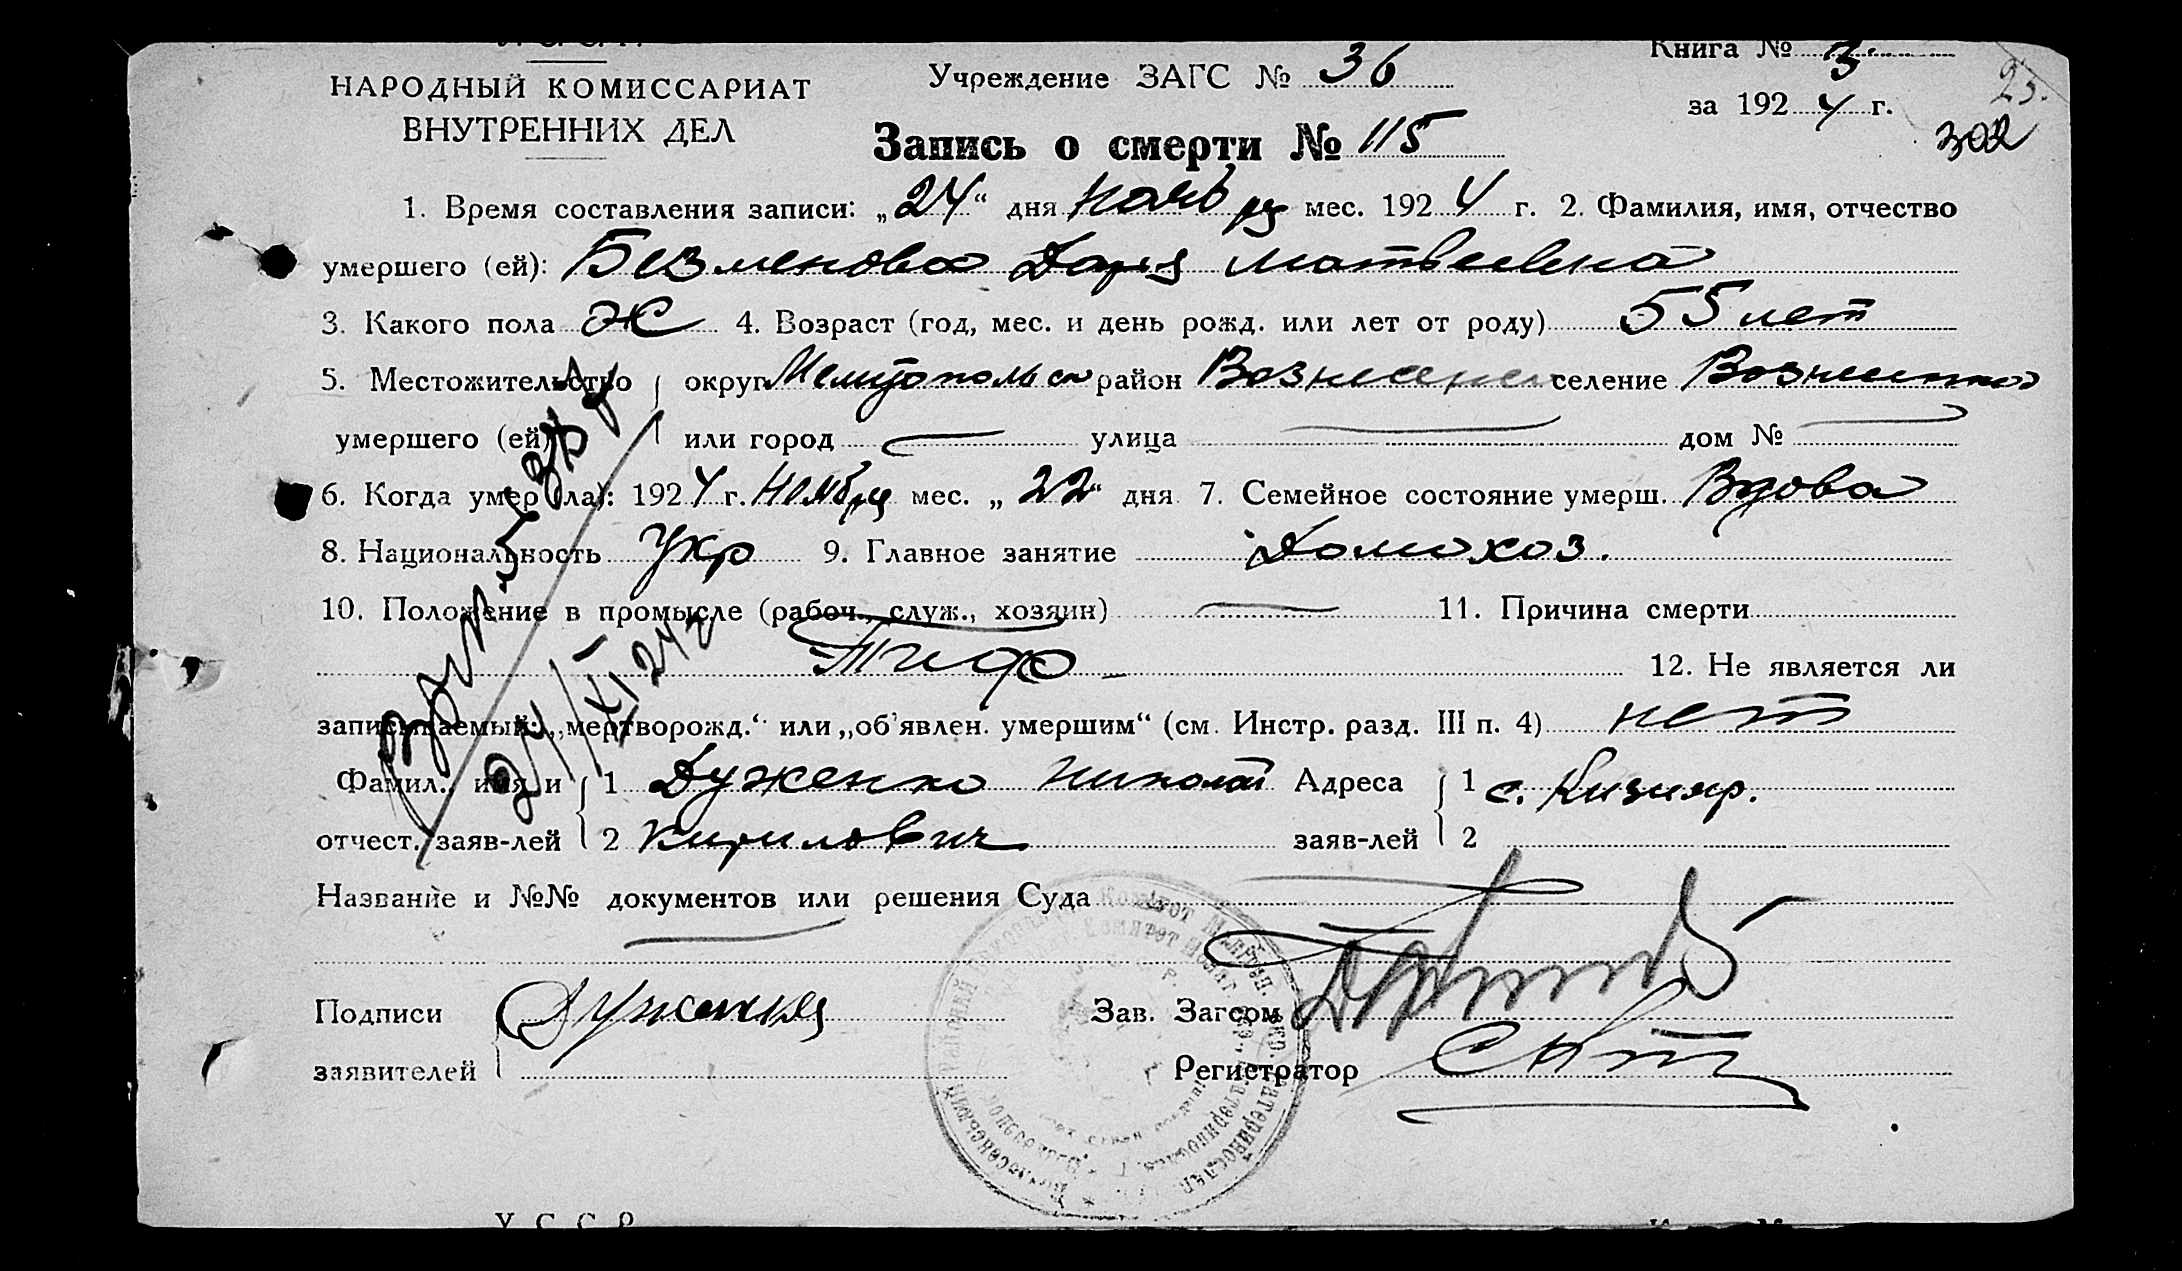 Книга № 3.
НАРОДНЫЙ КОМИССАРИАТ
ВНУТРЕННИХ ДЕЛ
Учреждение ЗАГС № 36
за 1924 г.
25.
302
Запись о смерти № 115
1. Время составления записи: „24“ дня ноября мес. 1924 г. 2. Фамилия, имя, отчество
умершего (ей): Безменова Дарія Матвеевна
3. Какого пола Ж 4. Возраст (год, мес. и день рожд. или лет от роду) 55 лет
5. Местожительство округ район селение
умершего (ей) или город — улица — дом № —
6. Когда умер (ла): 1924 г. Ноября мес. „22“ дня 7. Семейное состояние умерш. Вдова
8. Национальность Укр 9. Главное занятие Домохоз.
10. Положение в промысле (рабоч., служ., хозяин) — 11. Причина смерти
Тиф 12. Не является ли
записываемый: „мертворожд.“ или „об'явлен. умершим“ (см. Инстр. разд. III п. 4) нет
24/XI 24 г
Фамил., имя и 1 Дуженко Николай Адреса 1 с. Кизияр.
отчест. заяв-лей 2 Кирилович заяв-лей 2
Название и №№ документов или решения Суда
—
Подписи Зав. Загсом
заявителей Регистратор
У С С Р